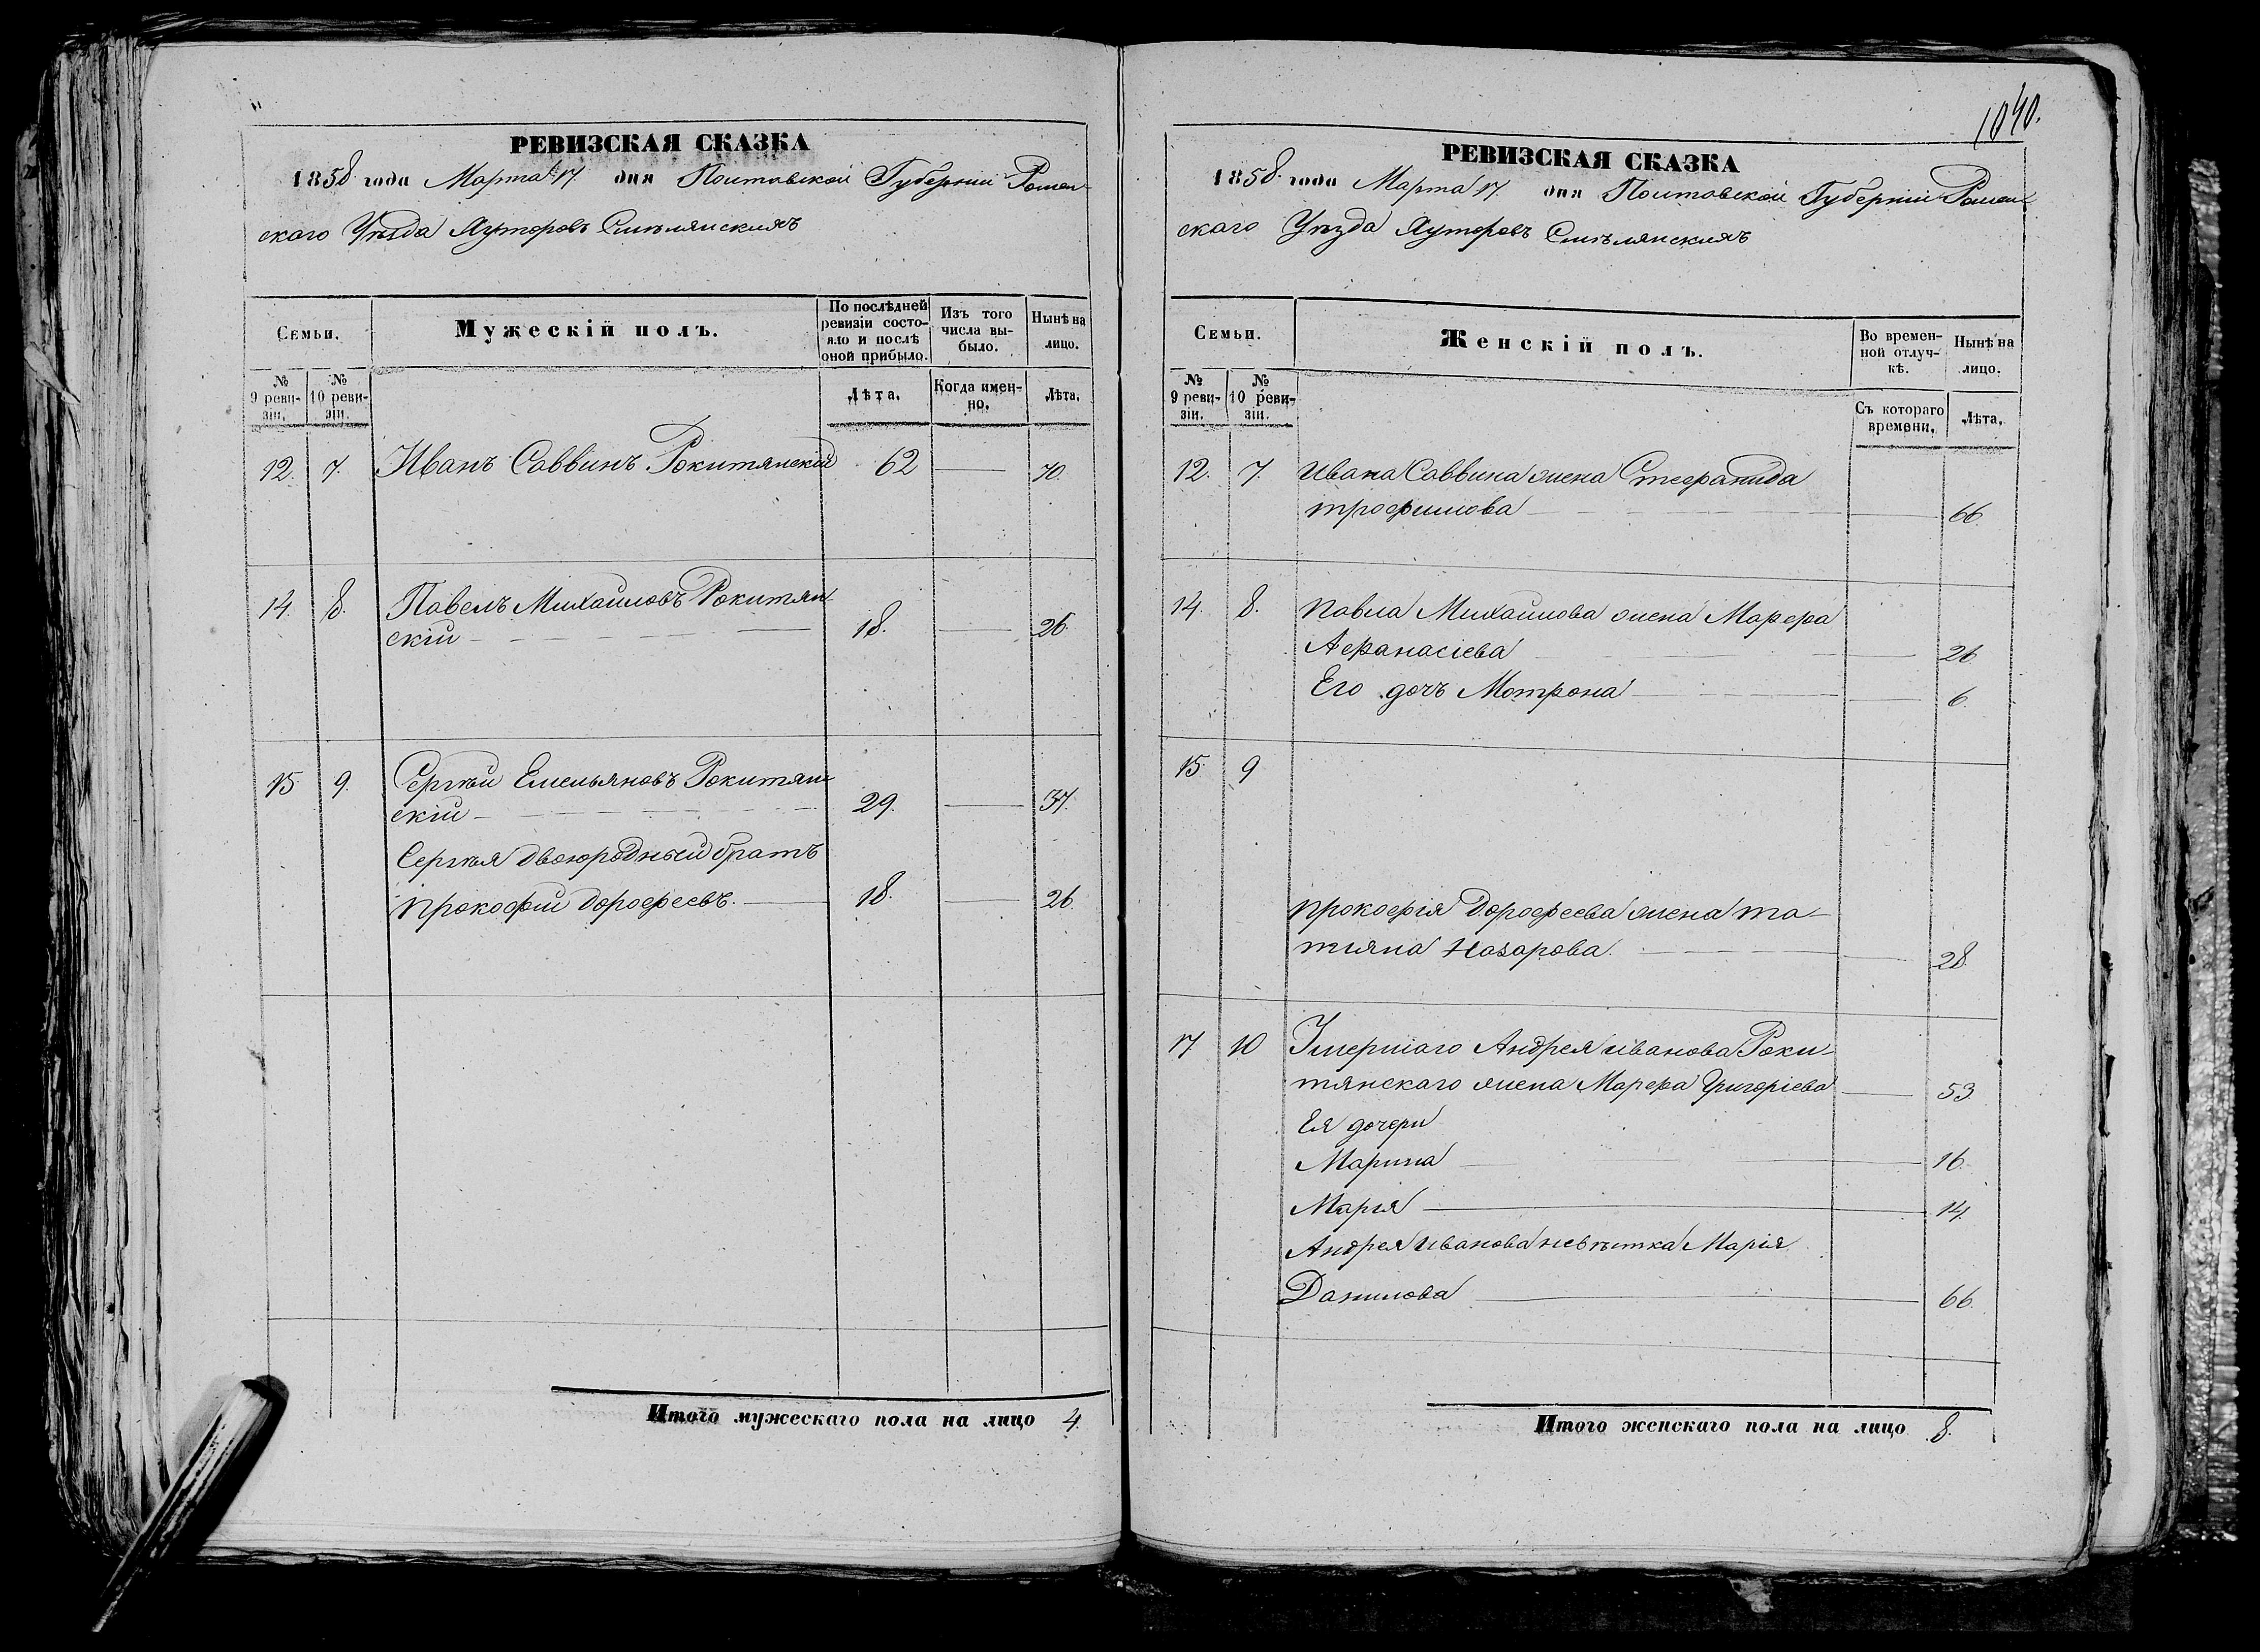 РЕВИЗСКАЯ СКАЗКА
1858 года Марта 17. дня Полтавской Губерніи Ромен-
скаго Уѣзда Хуторовъ Смѣлянскихъ
Семьи.
Мужескій полъ.
По послѣдней ревизіи состо-
яло и послѣ оной прибыло.
Изъ того числа вы-
было.
Нынѣ на лицо.
№ 9 реви-
зіи.
№ 10 реви-
зіи.
Лѣта.
Когда имен-
но.
Лѣта.
12. 7. Иванъ Саввинъ Рокитянскій 62 — 70.
14. 8. Павелъ Михаиловъ Рокитян-
скій — 18. — 26.
15 9. Сергѣй Емельяновъ Рокитян-
скій — 29. — 37.
Сергѣя двоюродный братъ
Прокофій Дорофеевъ. — 18. — 26.
Итого мужескаго пола на лицо 4.
1040.
РЕВИЗСКАЯ СКАЗКА
1858 года Марта 17. дня Полтавской Губерніи Ромен-
скаго Уѣзда Хуторовъ Смѣлянскихъ
Семьи.
Женскій полъ.
Во времен-
ной отлуч-
кѣ.
Нынѣ на лицо.
№ 9 реви-
зіи.
№ 10 реви-
зіи.
Съ котораго времени.
Лѣта.
12. 7. Ивана Саввина жена Стефанида
Трофимова — 66.
14. 8. Павла Михаилова жена Марфа
Афанасіева — 26
Его дочь Мотрона — 6.
15. 9
Прокофія Дорофеева жена Та-
тияна Назарова. — 28.
17 10 Умершаго Андрея Иванова Роки-
тянскаго жена Марфа Григоріева — 53.
Ея дочери
Марина — 16.
Марія — 14.
Андрея Иванова невѣстка Марія
Данилова — 66.
Итого женскаго пола на лицо 8.